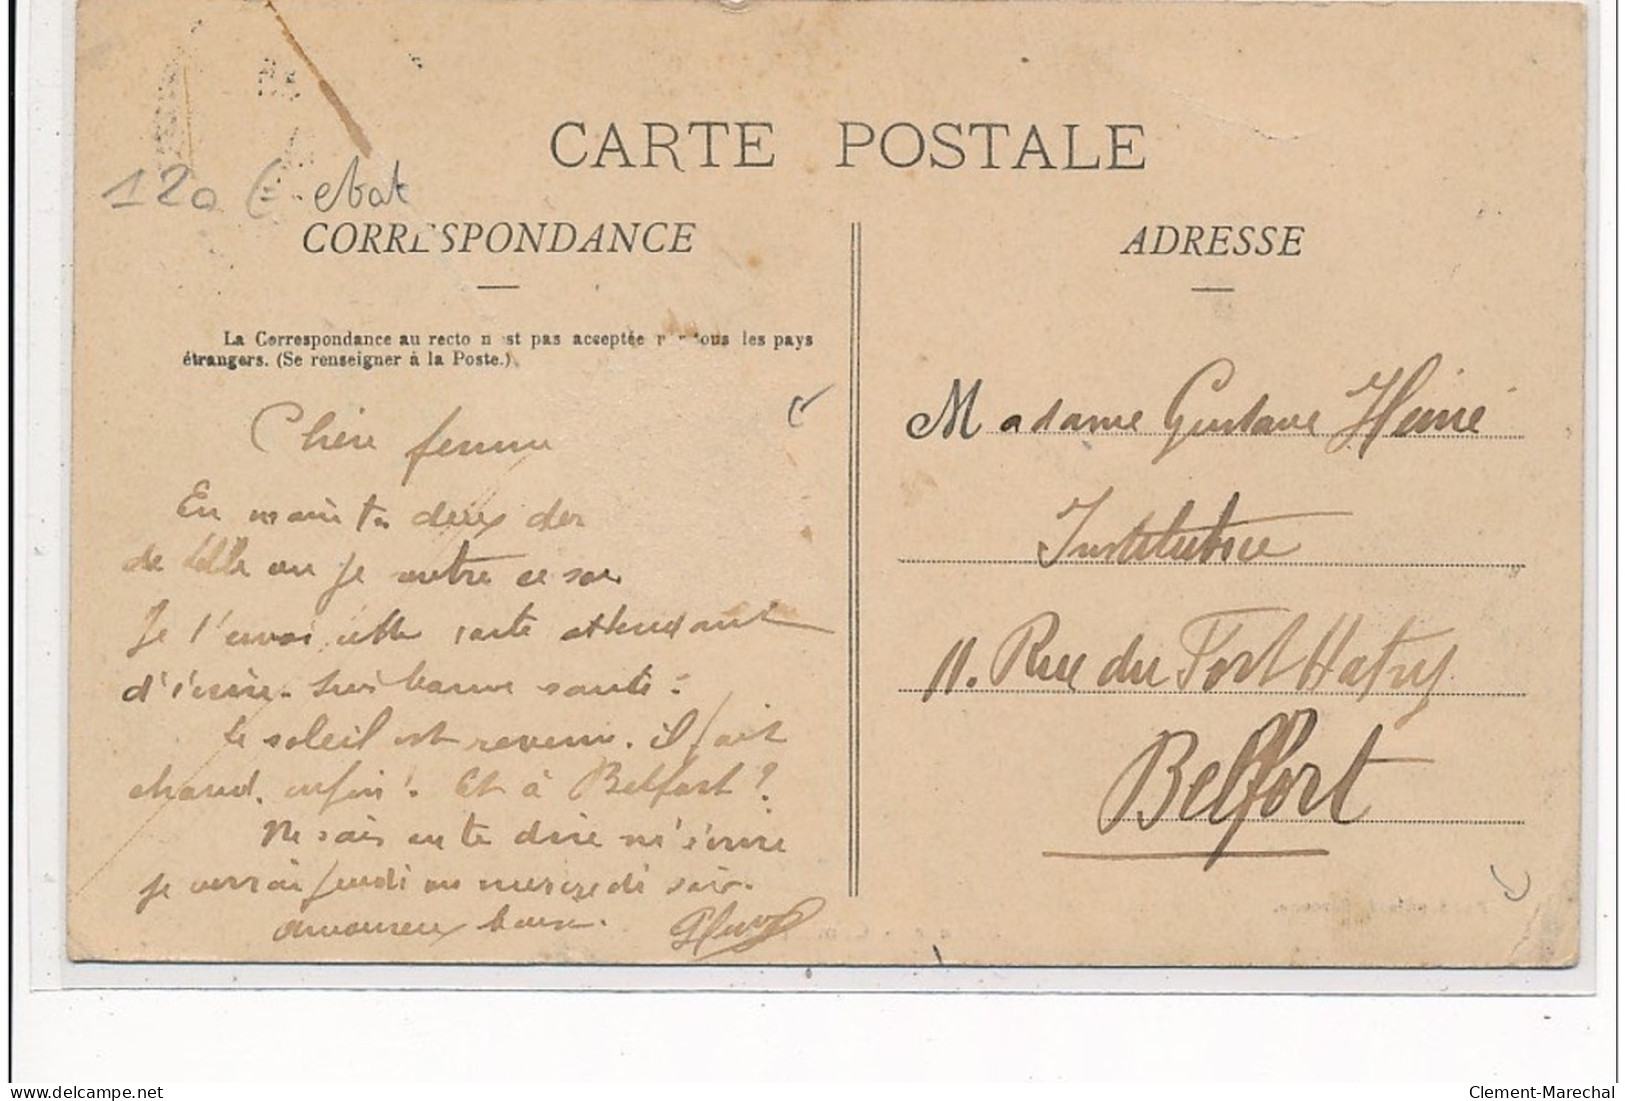 CARTE POSTALE
120 € ebat
CORRESPONDANCE
ADRESSE
La Correspondance au recto n'est pas acceptée par tous les pays
étrangers. (Se renseigner à la Poste.)
Chère femme
En deux
de où je rentre ce soir
Je t'envoi cette carte attendant
d'écrire. Suis bonne santé.
Le soleil est revenu. il fait
chaud. enfin! Et à Belfort?
Ne sais en te dire m'écrire
je verrai jeudi ou mercredi soir.
amoureux baiser.
Madame Gustave
Institutrice
11. Rue du Fort Hatry
Belfort
Clement-Marechal
www.delcampe.net